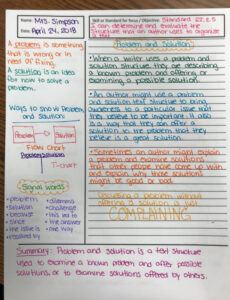 Name: Mrs. Simpson
Date: April 24, 2018
Skill or Standard for focus / Objective: Standard RI.5.5
can evaluate the
structure that an author uses to organize
a text
A problem is something
that is wrong or in
need of fixing.
A solution is an idea
for how to solve a
problem.
Ways to show Problem
and solution:
Problem
Solution
Flow Chart
Problem Solution
T-chart
Signal words
• problem
• solution
• because
• since
• the issue is
• resolved
• dilemma
• challenge
• this led to
• the answer
• one way
Problem and Solution
• When a writer uses a problem and
solution structure they are describing
a known problem and offering or
examining a possible solution.
• An author might use a problem
and solution text structure to bring
awareness to a particular issue that
they believe to be important. It also
is a way that they can offer a
solution to the problem that they
believe is a great solution.
• Sometimes an author might explain
a problem and examine solutions
that other people have come up with
and explain why those solutions
might be good or bad.
Discussing a problem without
offering a solution is just
COMPLAINING
Summary: Problem and solution is a text structure
used to examine a known problem and offer possible
solutions, or to examine solutions offered by others.